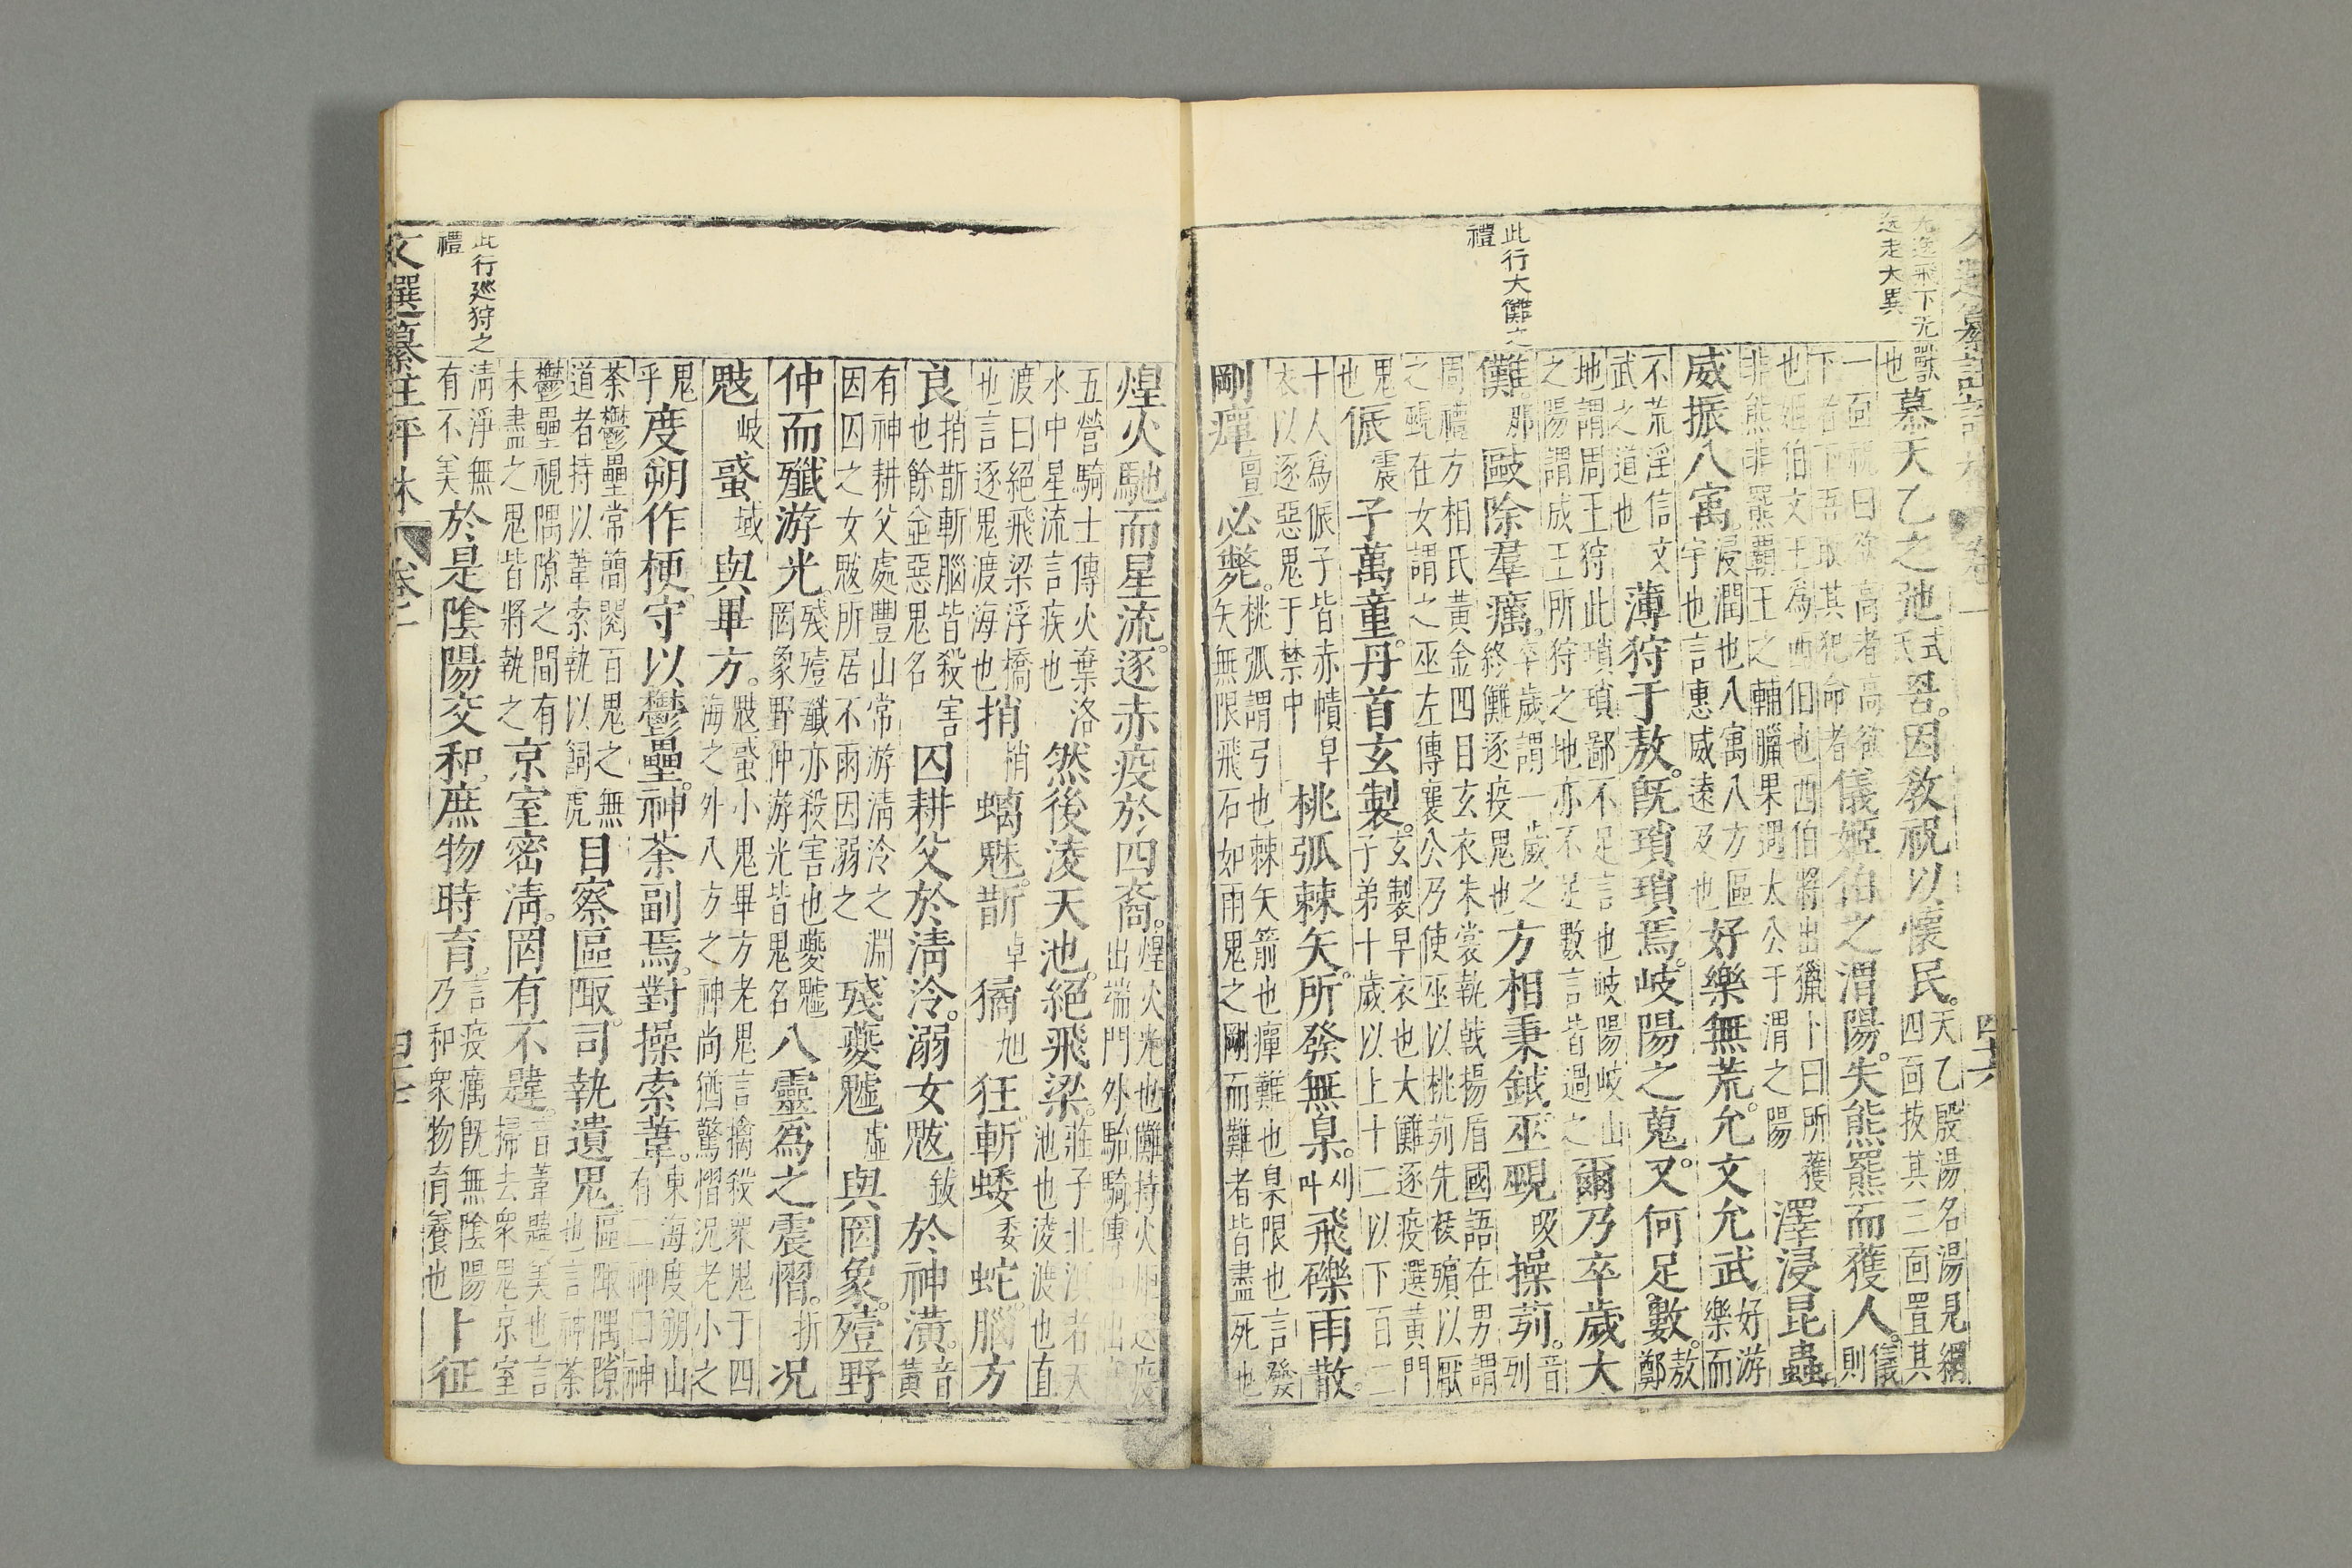 无逸飛下无獸
逸走大異
也慕天乙之弛式氏罟。因教祝以懷民。天乙殷湯名湯見網四面拔其三面置其
一面祝曰欲高者高欲下者下吾取其犯命者儀姬伯之渭陽。失熊羆而獲人。儀則
也姬伯文王為西伯也西伯將出獵卜曰所獲非熊非羆霸王之輔臘果遇太公于渭之陽澤浸昆蟲。
威振八㝢浸潤也八㝢八方區宇也言惠威遠及也好樂無荒。允文允武好游樂而
不荒淫信文武之道也薄狩于敖。既瑣瑣焉。岐陽之蒐。又何足數。敖鄭
地謂周王狩此瑣瑣鄙不足言也岐陽岐山之陽謂成王所狩之地亦不足數言皆過之爾乃卒歲大
此行大儺之
禮
儺。那敺除羣癘。卒歲謂一歲之終儺逐疫鬼也方相秉鉞巫覡叹操茢。音列
周禮方相氏黃金四目玄衣朱裳執戟揚盾國語在男謂之覡在女謂之巫左傳襄公乃使巫以桃茢先祓殯以厭
鬼也侲震子萬童。丹首玄製。玄製早衣也大儺逐疫選黃門子弟十歲以上十二以下百二
十人為侲子皆赤幘早衣以逐惡鬼于禁中桃弧棘矢。所發無臬。刈叶飛礫雨散。
剛癉亶必斃。桃弧謂弓也棘矢箭也癉難也臬限也言發矢無限飛石如雨鬼之剛而難者皆盡死也
煌火馳而星流。逐赤疫於四裔。煌火光也儺持火炬送疫出端門外騶騎傳
五營騎士傳火棄洛水中星流言疾也然後凌天池。絕飛梁。莊子北溟者天池也凌渡也直
渡曰絕飛梁浮橋也言逐鬼渡海也捎梢螭魅。斮卓獝旭狂。斬蜲委蛇。腦方
良捎斮斬腦皆殺害也餘並惡鬼名囚耕父於清泠。溺女魃鈸於神潢。音黃
有神耕父處豐山常游清泠之淵因囚之女魃所居不雨因溺之殘夔魖虛與罔象。殪野
仲而殲游光。殘殪殲亦殺害也夔魖罔象野仲游光皆鬼名八靈為之震慴。折況
魃岐蜮域與畢方。魃蜮小鬼畢方老鬼言擒殺眾鬼于四海之外八方之神尚猶驚慴況老小之
鬼乎度朔作梗。守以鬱壘。神荼副焉。對操索葦。東海度朔山有二神曰神
荼鬱壘常簡閱百鬼之無道者持以葦索執以飼虎目察區陬。司執遺鬼。區陬隅隙也言神荼
鬱壘視隅隙之間有未盡之鬼皆將執之京室密清。罔有不韙。音葦韙美也言掃去眾鬼京室
此行巡狩之
禮
清淨無有不美於是陰陽交和。庶物時育。言疫癘既無陰陽乃和眾物育養也卜征
文選纂註評林 卷一 四十七